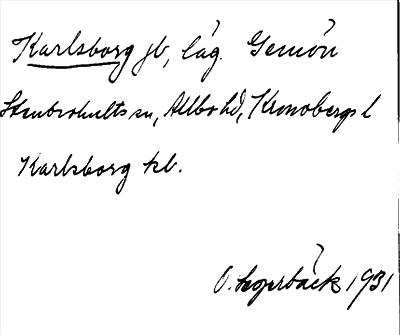 Karlsborg jb, läg. Gemön
Stenbrohults sn, Allbo hd, Kronobergs l
Karlsborg kb.
1931